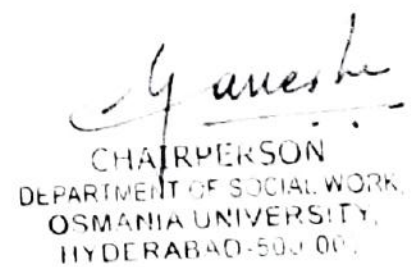 Ganesh
CHAIRPERSON
DEPARTMENT OF SOCIAL WORK,
OSMANIA UNIVERSITY,
HYDERABAD-500 00